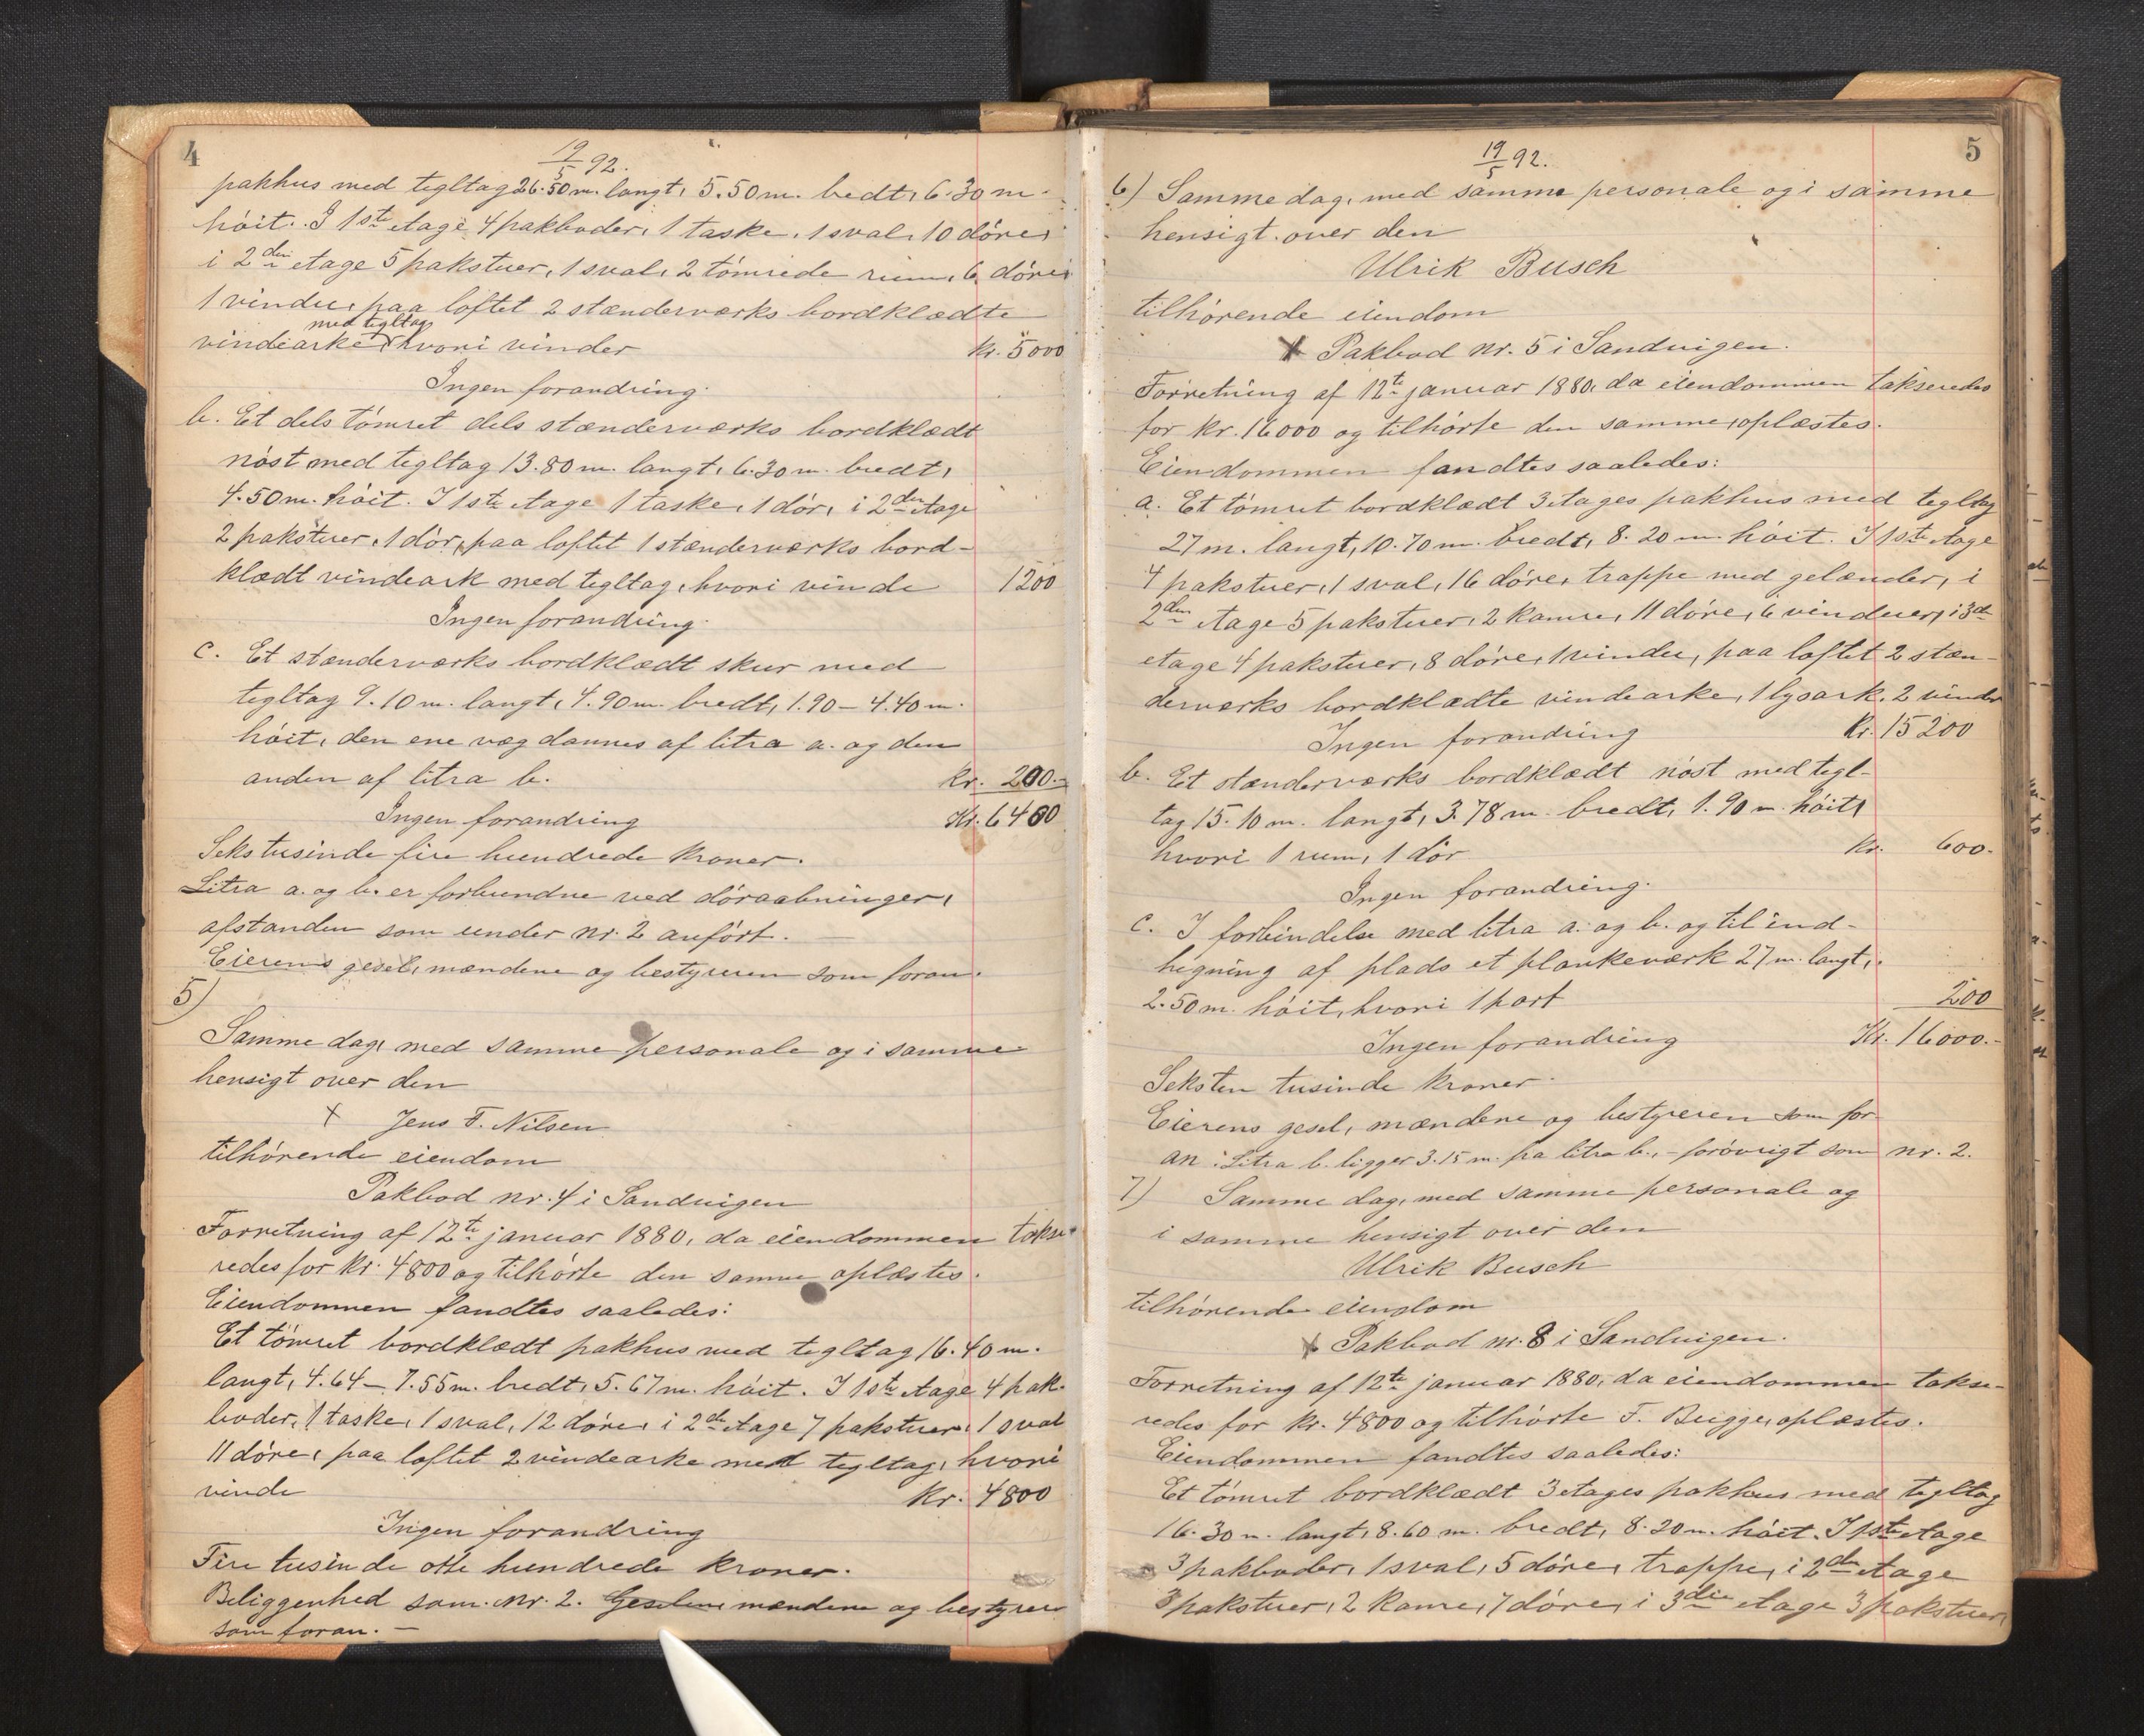 4
19/5 92.
pakhus med tegltag 26.50 m. langt, 5.50 m. bredt, 6.30 m.
høit. I 1ste etage 4 pakboder, 1 taske, 1 sval, 10 døre,
i 2den etage 5 pakstuer, 1 sval, 2 tømrede rum, 6 døre,
1 vindu, paa loftet 2 stænderværks bordklædte
med tegltag
vindearke hvori vinder kr. 5000
Ingen forandring.
b. Et dels tømret dels stænderværks bordklædt
nøst med tegltag 13.80 m. langt, 6.30 m. bredt,
4.50 m. høit. I 1ste etage 1 taske, 1 dør, i 2den etage
2 pakstuer, 1 dør, paa loftet 1 stænderværks bord-
klædt vindeark med tegltag, hvori vinde 1200
Ingen forandring.
c. Et stænderværks bordklædt skur med
tegltag 9.10 m. langt, 4.90 m. bredt, 1.90 - 4.40 m.
høit, den ene væg dannes af litra a. og den
anden af litra b. kr. 200.-
Ingen forandring Kr. 6400
Seks tusinde fire hundrede kroner.
Litra a. og b. er forbundne ved døraabninger,
afstanden som under nr. 2 anført.
Eierens gesel, mændene og bestyreren som foran.
5)
Samme dag, med samme personale og i samme
hensigt over den
x Jens F. Nilsen
tilhørende eiendom
Pakbod nr. 4 i Sandvigen
Forretning af 12te januar 1880, da eiendommen takse-
redes for kr. 4800 og tilhørte den samme oplæstes.
Eiendommen fandtes saaledes:
Et tømret bordklædt pakhus med tegltag 16.40 m.
langt, 4.64 - 7.55 m. bredt, 5.67 m. høit. I 1ste etage 4 pak-
boder, 1 taske, 1 sval, 12 døre, i 2den etage 7 pakstuer, 1 sval
11 døre, paa loftet 2 vindearke med tegltag, hvori
vinde kr. 4800
Ingen forandring
Fire tusinde otte hundrede kroner.
Beliggenhed som nr. 2. mændene og bestyrer
som foran. -
5
19/5 92.
6) Samme dag, med samme personale og i samme
hensigt over den
Ulrik Busch
tilhørende eiendom
x Pakbod nr. 5 i Sandvigen.
Forretning af 12te januar 1880, da eiendommen takseredes
for kr. 16000 og tilhørte den samme, oplæstes.
Eiendommen fandtes saaledes:
a. Et tømret bordklædt 3 etages pakhus med tegltag
27 m. langt, 10.70 m. bredt, 8.20 m. høit. I 1ste etage
4 pakstuer, 1 sval, 16 døre, trappe med gelænder, i
2den etage 5 pakstuer, 2 kamre, 11 døre, 6 vinduer, i 3die
etage 4 pakstuer, 8 døre, 1 vindu, paa loftet 2 stæn-
derværks bordklædte vindearke, 1 lysark, 2 vinder
Ingen forandring kr. 15200
b. Et stænderværks bordklædt nøst med tegl-
tag 15.10 m. langt, 3.78 m. bredt, 1.90 m. høit,
hvori 1 rum, 1 dør kr. 600.
Ingen forandring.
c. I forbindelse med litra a. og b. og til ind-
hegning af plads et plankeværk 27 m. langt,
2.50 m. høit, hvori 1 port 200
Ingen forandring Kr. 16000.-
Seksten tusinde kroner.
Eierens gesel, mændene og bestyreren som for
an. Litra b. ligger 3.15 m. fra litra b., - forøvrigt som nr. 2.
7) Samme dag, med samme personale og
i samme hensigt over den
Ulrik Busch
tilhørende eiendom
x Pakbod nr. 8 i Sandvigen.
Forretning af 12te januar 1880, da eiendommen takse-
redes for kr. 4800 og tilhørte F. Brigge, oplæstes.
Eiendommen fandtes saaledes:
Et tømret bordklædt 3 etages pakhus med tegltag
16.30 m. langt, 8.60 m. bredt, 8.20 m. høit. I 1ste etage
3 pakboder, 1 sval, 5 døre, trappe, i 2den etage
3 pakstuer, 2 kamre, 7 døre, i 3die etage 3 pakstuer,